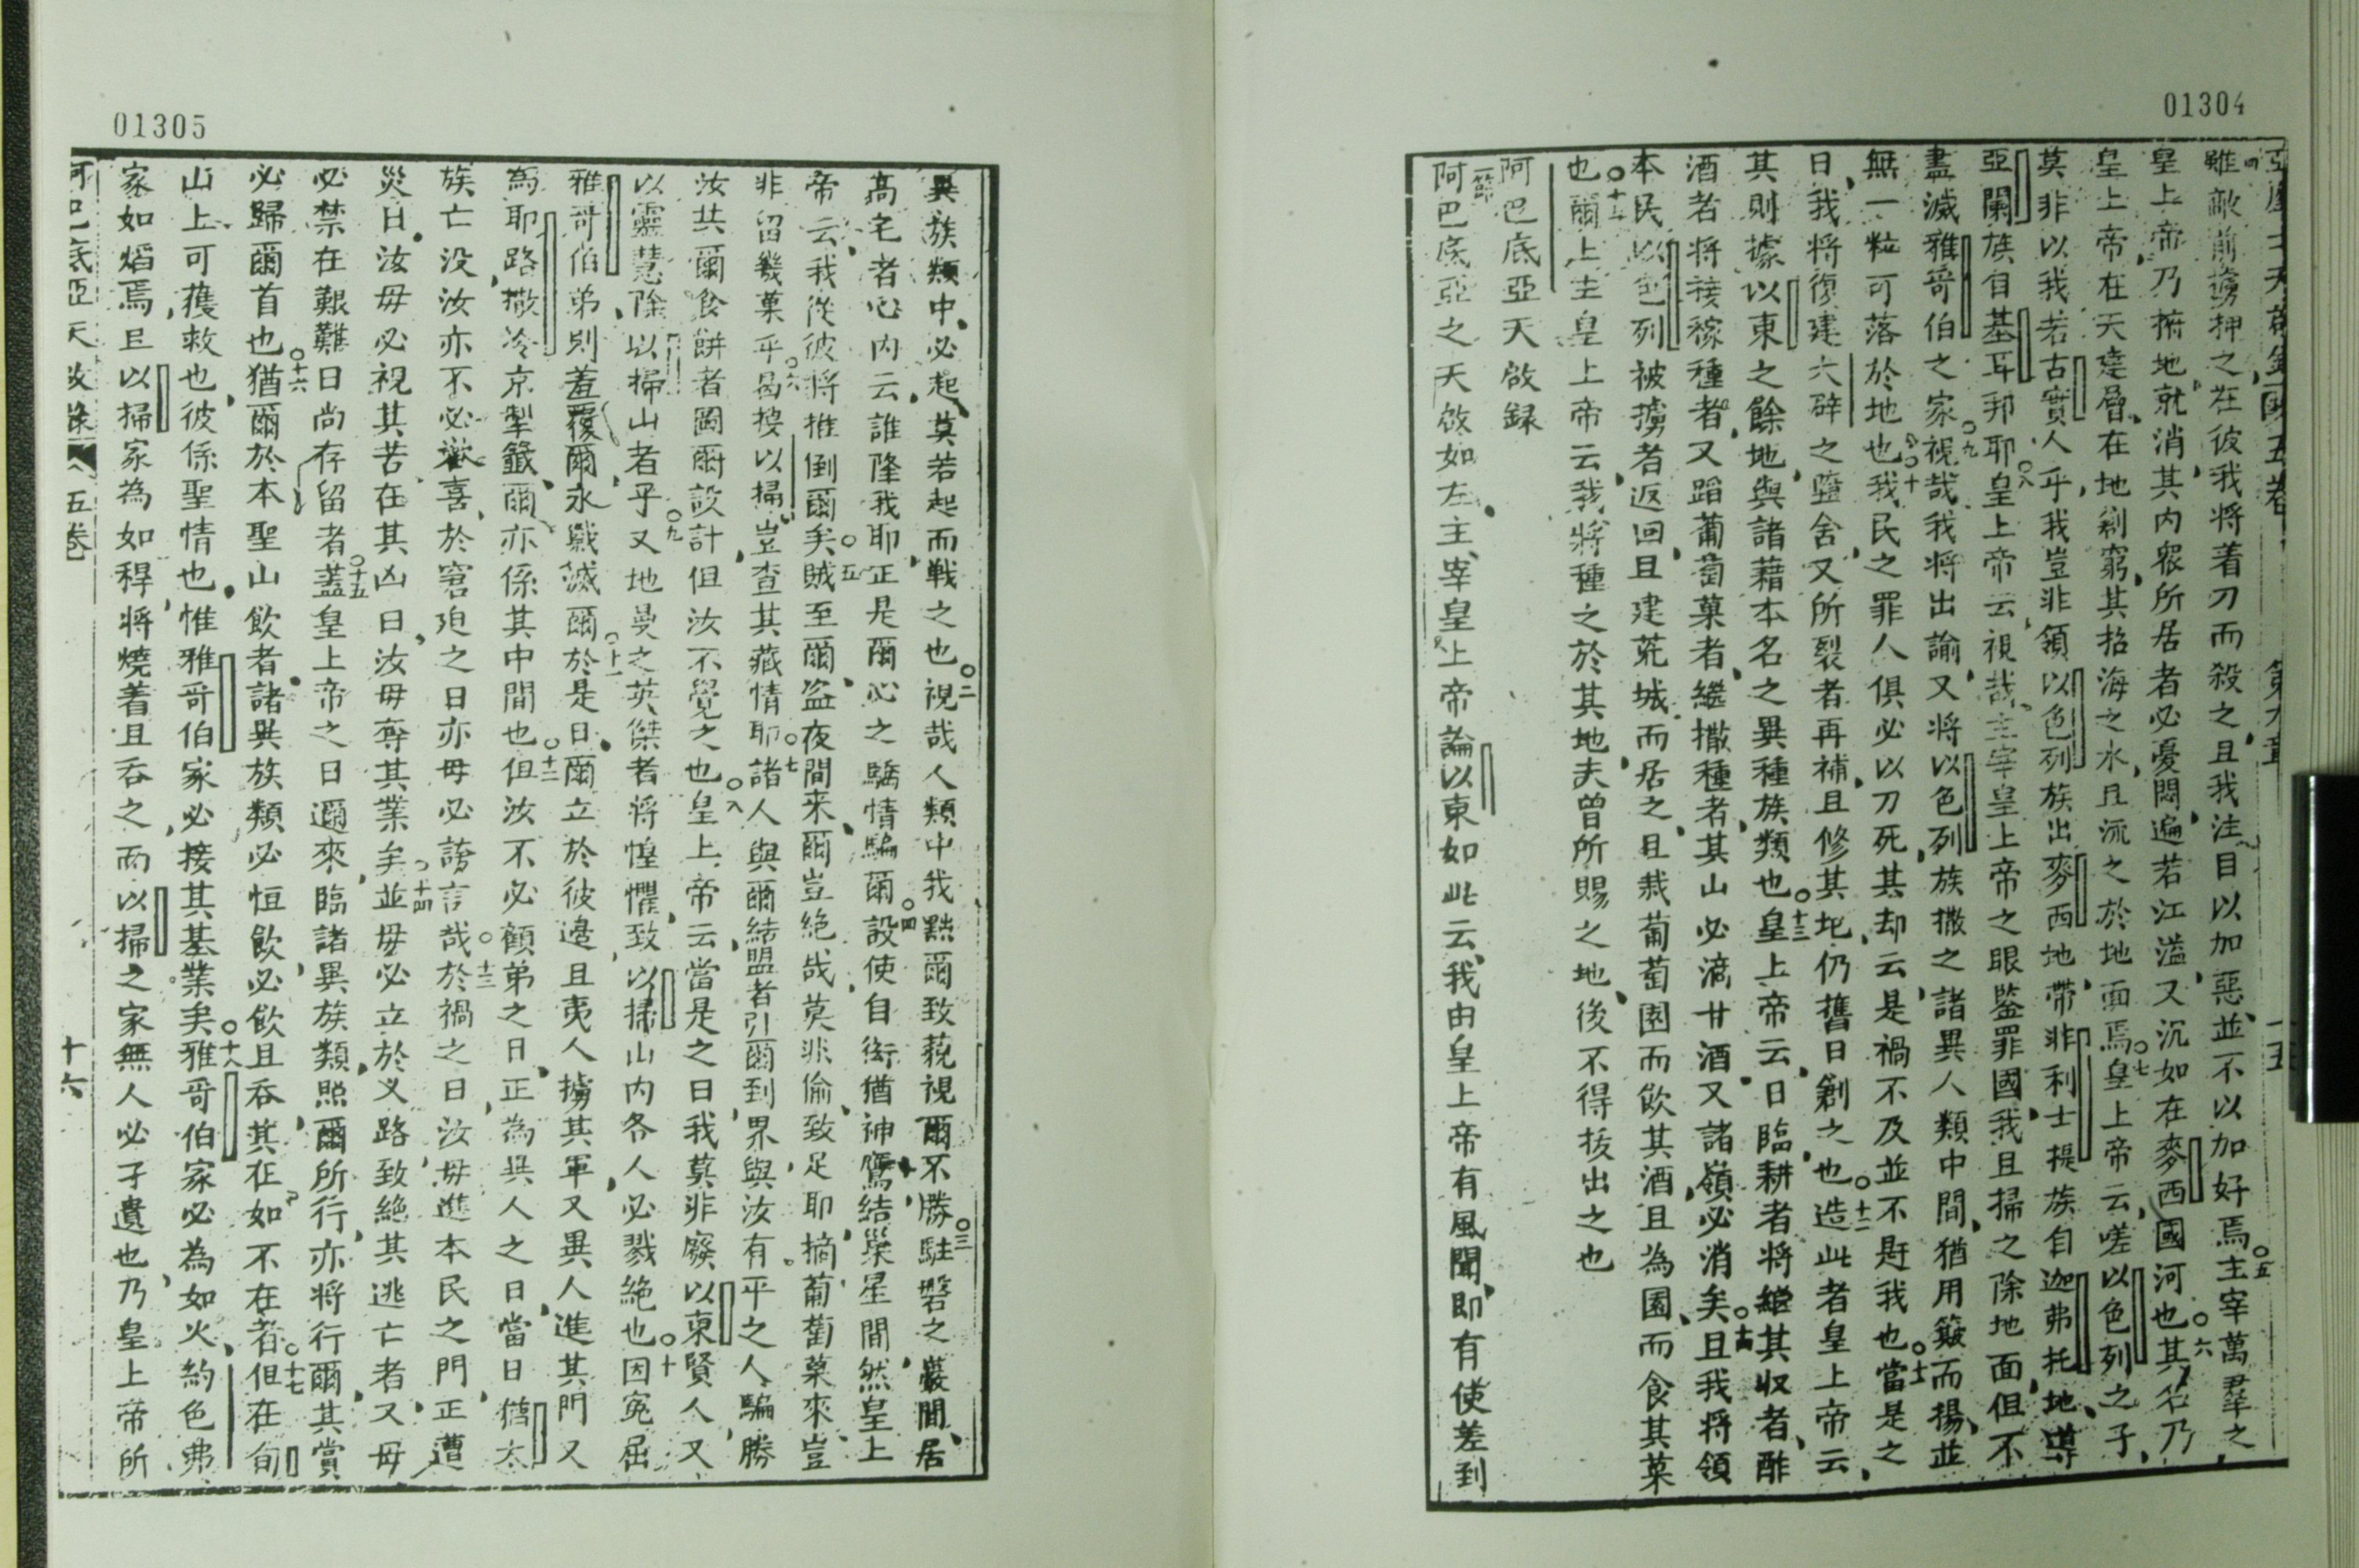 01304
第九章
雖敵前擄押之在彼我將着刀而殺之且我注目以加惡並不以加好焉○五主宰萬羣之
皇上帝乃捬地就消其內眾所居者必憂悶遍若江溢又沉如在麥西國河也○六其名乃
皇上帝在天建層在地剏窮其招海之水且流之於地面焉○七皇上帝云嗟以色列之子
莫非以我若古實人乎我豈非領以色列族出麥西地帶非利士提族自迦弗托地導
亞闌族自基耳邦耶○八皇上帝云視哉主宰皇上帝之眼鑒罪國我且掃之除地面但不
盡滅雅哥伯之家○九視哉我將出諭又將以色列族撒之諸異人類中間猶用簸而揚並
無一粒可落於地也○十我民之罪人俱必以刀死其却云是禍不及並不赶我也○十一當是之
日我將復建大辟之壟舍又所裂者再補且修其圯仍舊日剏之也○十二造此者皇上帝云
其則據以東之餘地與諸藉本名之異種族類也○十三皇上帝云日臨耕者將繼其収者酢
酒者將接稼種者又蹈葡萄菓者繼撒種者其山必滴甘酒又諸嶺必消矣○十四且我將領
本民以色列被擄者返回且建荒城而居之且栽葡萄園而飲其酒且為園而食其菓
也○十五爾上主皇上帝云我將種之於其地夫曾所賜之地後不得拔出之也
阿巴底亞天啟錄
一節
阿巴底亞之天啟如左主宰皇上帝論以東如此云我由皇上帝有風聞即有使差到
01305
異族類中必起莫若起而戰之也○二視哉人類中我黜爾致藐視爾不勝○三駐磐之巖間居
高宅者心內云誰隆我耶正是爾心之驕情騙爾○四設使自衒猶神鷹結巢星間然皇上
帝云我從彼將推倒爾矣○五賊至爾盜夜間來爾豈絕哉莫非偷致足耶摘葡萄菓來豈
非留幾菓乎○六曷搜以掃豈查其藏情耶○七諸人與爾結盟者引爾到界與汝有平之人騙勝
汝共爾食餅者圖爾設計但汝不覺之也○八皇上帝云當是之日我莫非廢以東賢人又
以靈慧除以掃山者乎○九又地曼之英傑者將惶懼致以掃山內各人必戮絕也○十因冤屈
雅哥伯弟則羞覆爾永戮滅爾○十一於是日爾立於彼邊且夷人擄其軍又異人進其門又
為耶路撒冷京掣籤爾亦係其中間也○十二但汝不必顧弟之日正為異人之日當日猶太
族亡没汝亦不必歡喜於窘廹之日亦毋必誇言哉○十三於禍之日汝毋進本民之門正遭
災日汝毋必視其苦在其凶日汝毋奪其業矣○十四並毋必立於义路致絕其逃亡者又毋
必禁在艱難日尚存留者○十五蓋皇上帝之日邇來臨諸異族類照爾所行亦將行爾其賞
必歸爾首也○十六猶爾於本聖山飲者諸異族類必恒飲必飲且吞其在如不在者○十七但在旬
山上可獲救也彼係聖情也惟雅哥伯家必接其基業矣○十八雅哥伯家必為如火約色弗
家如焰焉且以掃家為如稈將燒着且吞之而以掃之家無人必孑遺也乃皇上帝所
阿巴底亞天啟錄 五卷 十六